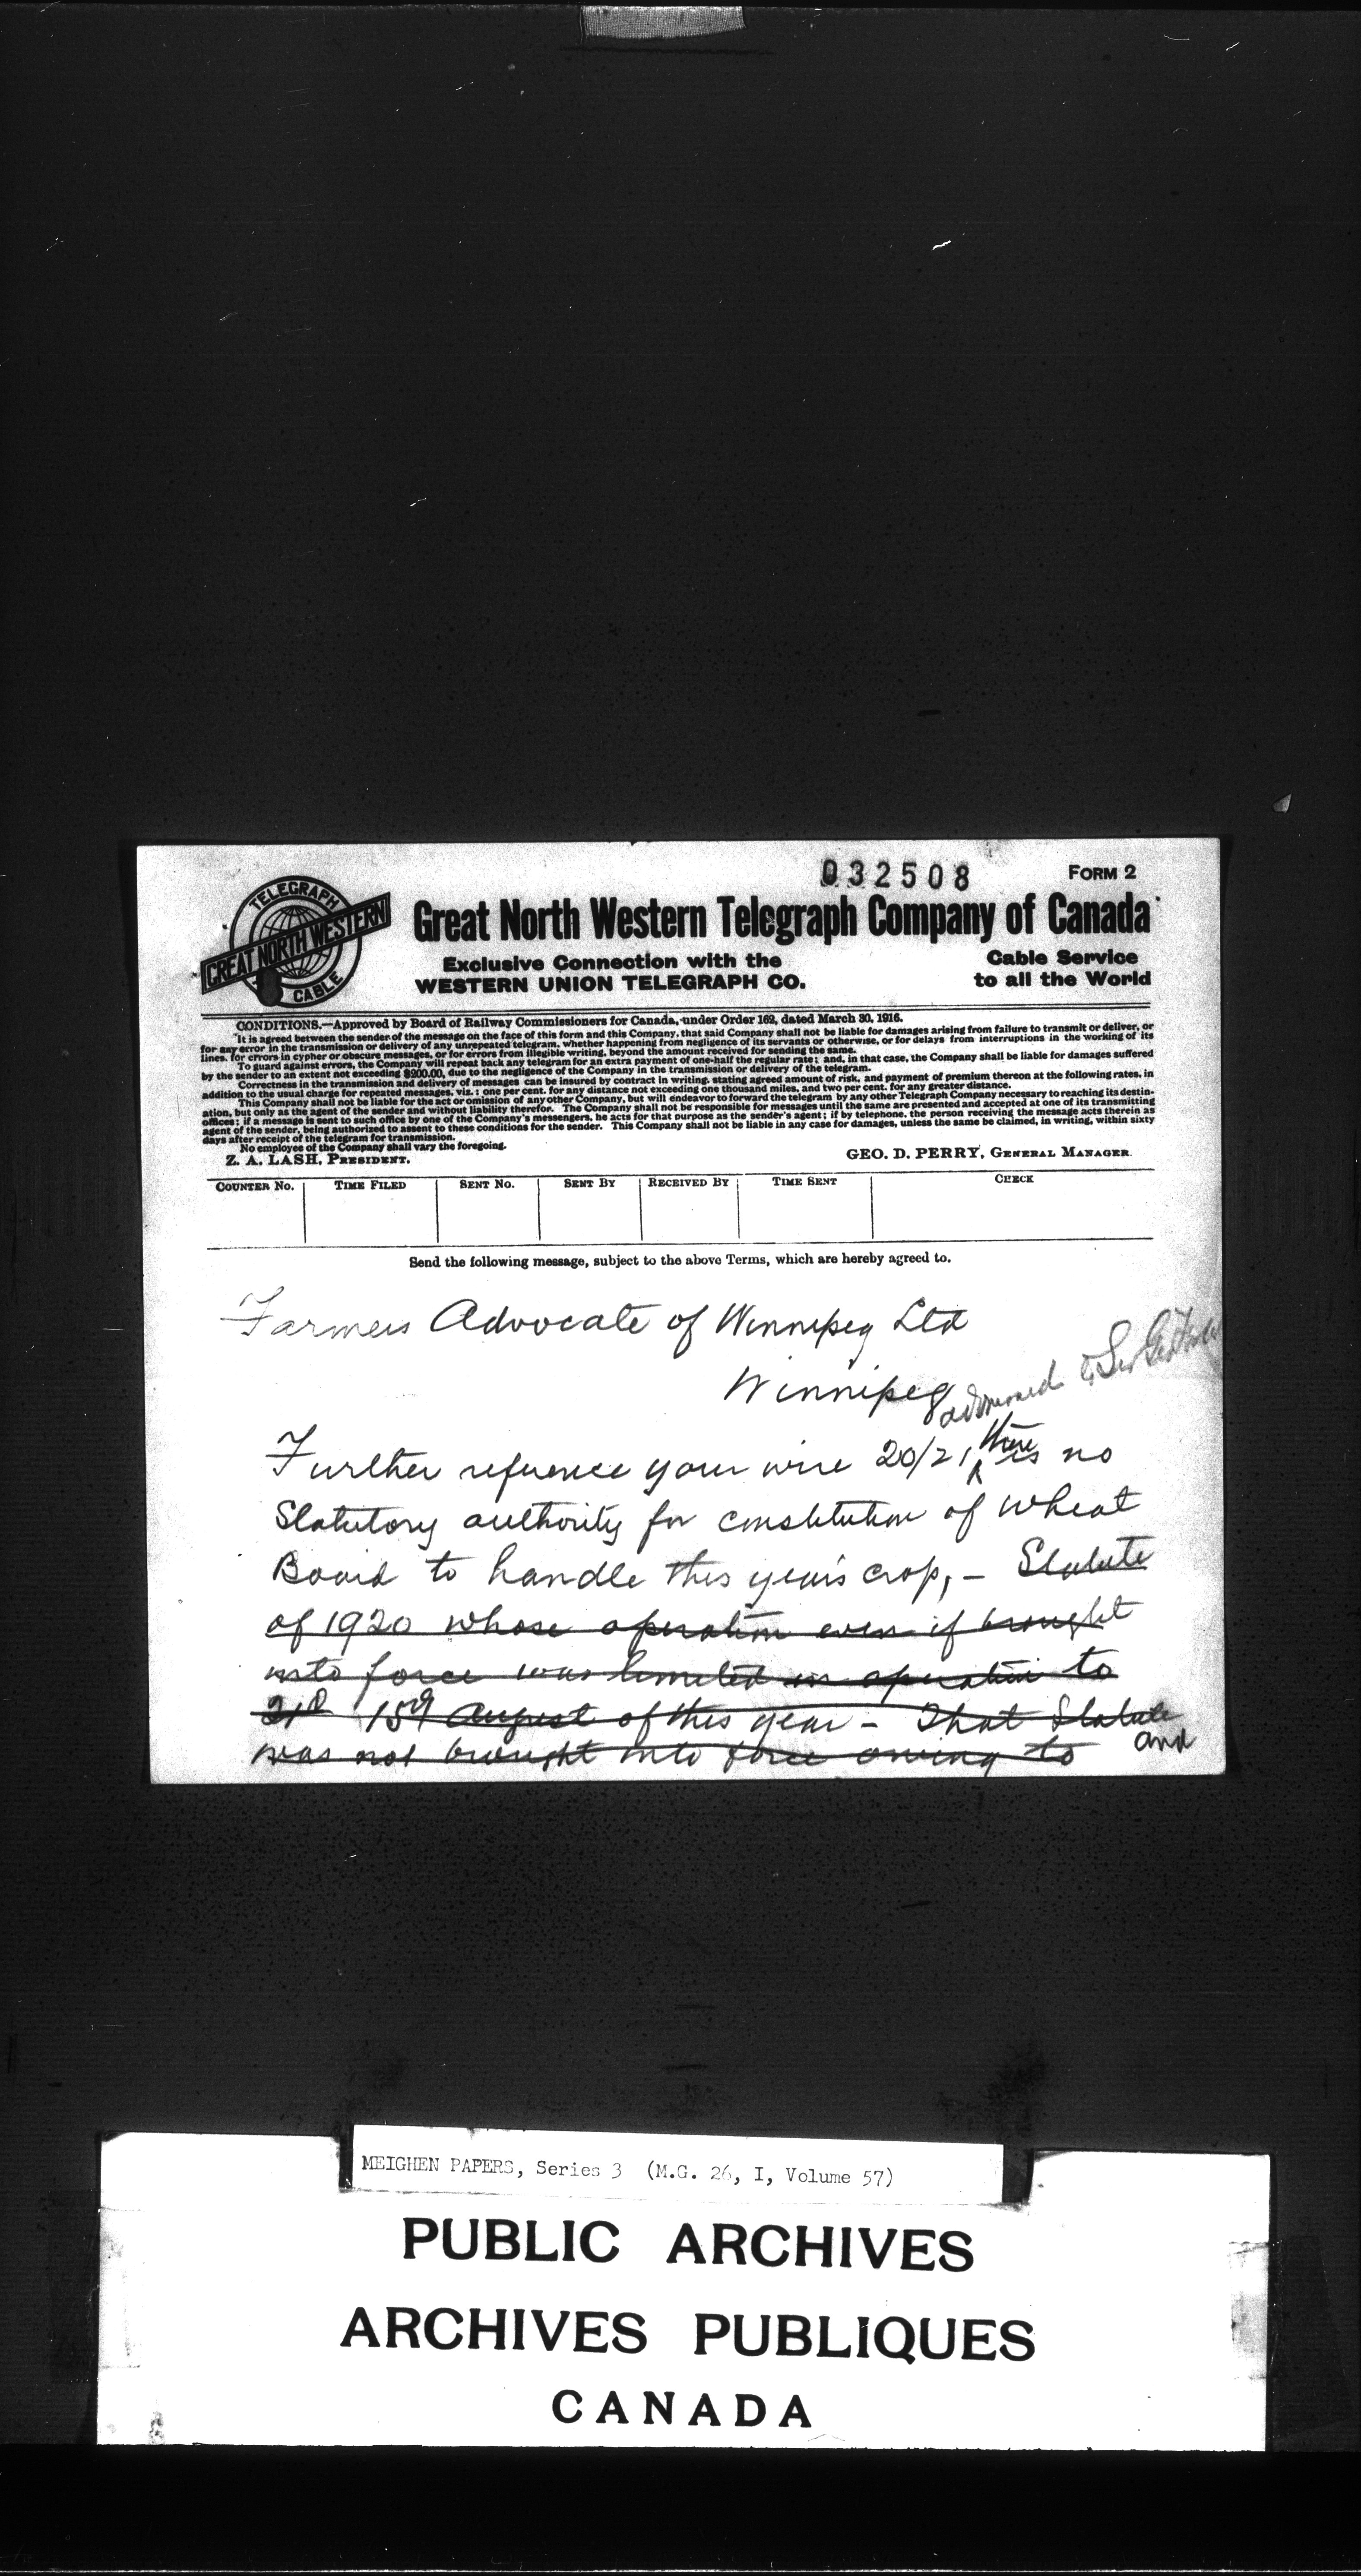 032508
FORM 2
TELEGRAPH
GREAT NORTH WESTERN
CABLE
Great North Western Telegraph Company of Canada
Exclusive Connection with the
WESTERN UNION TELEGRAPH CO.
Cable Service
to all the World
CONDITIONS.—Approved by Board of Railway Commissioners for Canada, under Order 162, dated March 30, 1916.
It is agreed between the sender of the message on the face of this form and this Company, that said Company shall not be liable for damages arising from failure to transmit or deliver, or
for any error in the transmission or delivery of any unrepeated telegram, whether happening from negligence of its servants or otherwise, or for delays from interruptions in the working of its
lines, for errors in cypher or obscure messages, or for errors from illegible writing, beyond the amount received for sending the same.
To guard against errors, the Company will repeat back any telegram for an extra payment of one-half the regular rate; and, in that case, the Company shall be liable for damages suffered
by the sender to an extent not exceeding $200.00, due to the negligence of the Company in the transmission or delivery of the telegram.
Correctness in the transmission and delivery of messages can be insured by contract in writing, stating agreed amount of risk, and payment of premium thereon at the following rates, in
addition to the usual charge for repeated messages, viz.: one per cent. for any distance not exceeding one thousand miles, and two per cent. for any greater distance.
This Company shall not be liable for the act or omission of any other Company, but will endeavor to forward the telegram by any other Telegraph Company necessary to reaching its destin-
ation, but only as the agent of the sender and without liability therefor. The Company shall not be responsible for messages until the same are presented and accepted at one of its transmitting
offices; if a message is sent to such office by one of the Company's messengers, he acts for that purpose as the sender's agent; if by telephone, the person receiving the message acts therein as
agent of the sender, being authorized to assent to these conditions for the sender. This Company shall not be liable in any case for damages, unless the same be claimed, in writing, within sixty
days after receipt of the telegram for transmission.
No employee of the Company shall vary the foregoing.
Z. A. LASH, PRESIDENT.
GEO. D. PERRY, GENERAL MANAGER.
COUNTER No. TIME FILED SENT No. SENT BY RECEIVED BY TIME SENT CHECK
Send the following message, subject to the above Terms, which are hereby agreed to.
Farmers Advocate of Winnipeg Ltd
Winnipeg
addressed to Sir Geo
Further reference your wire 20/21 there is no
Statutory authority for constitution of Wheat
Board to handle this year's crop, – Statute
of 1920 whose operation even if brought
into force was limited in operation to
15th August of this year – That Statute
was not brought into force owing to and
MEIGHEN PAPERS, Series 3 (M.G. 26, I, Volume 57)
PUBLIC ARCHIVES
ARCHIVES PUBLIQUES
CANADA